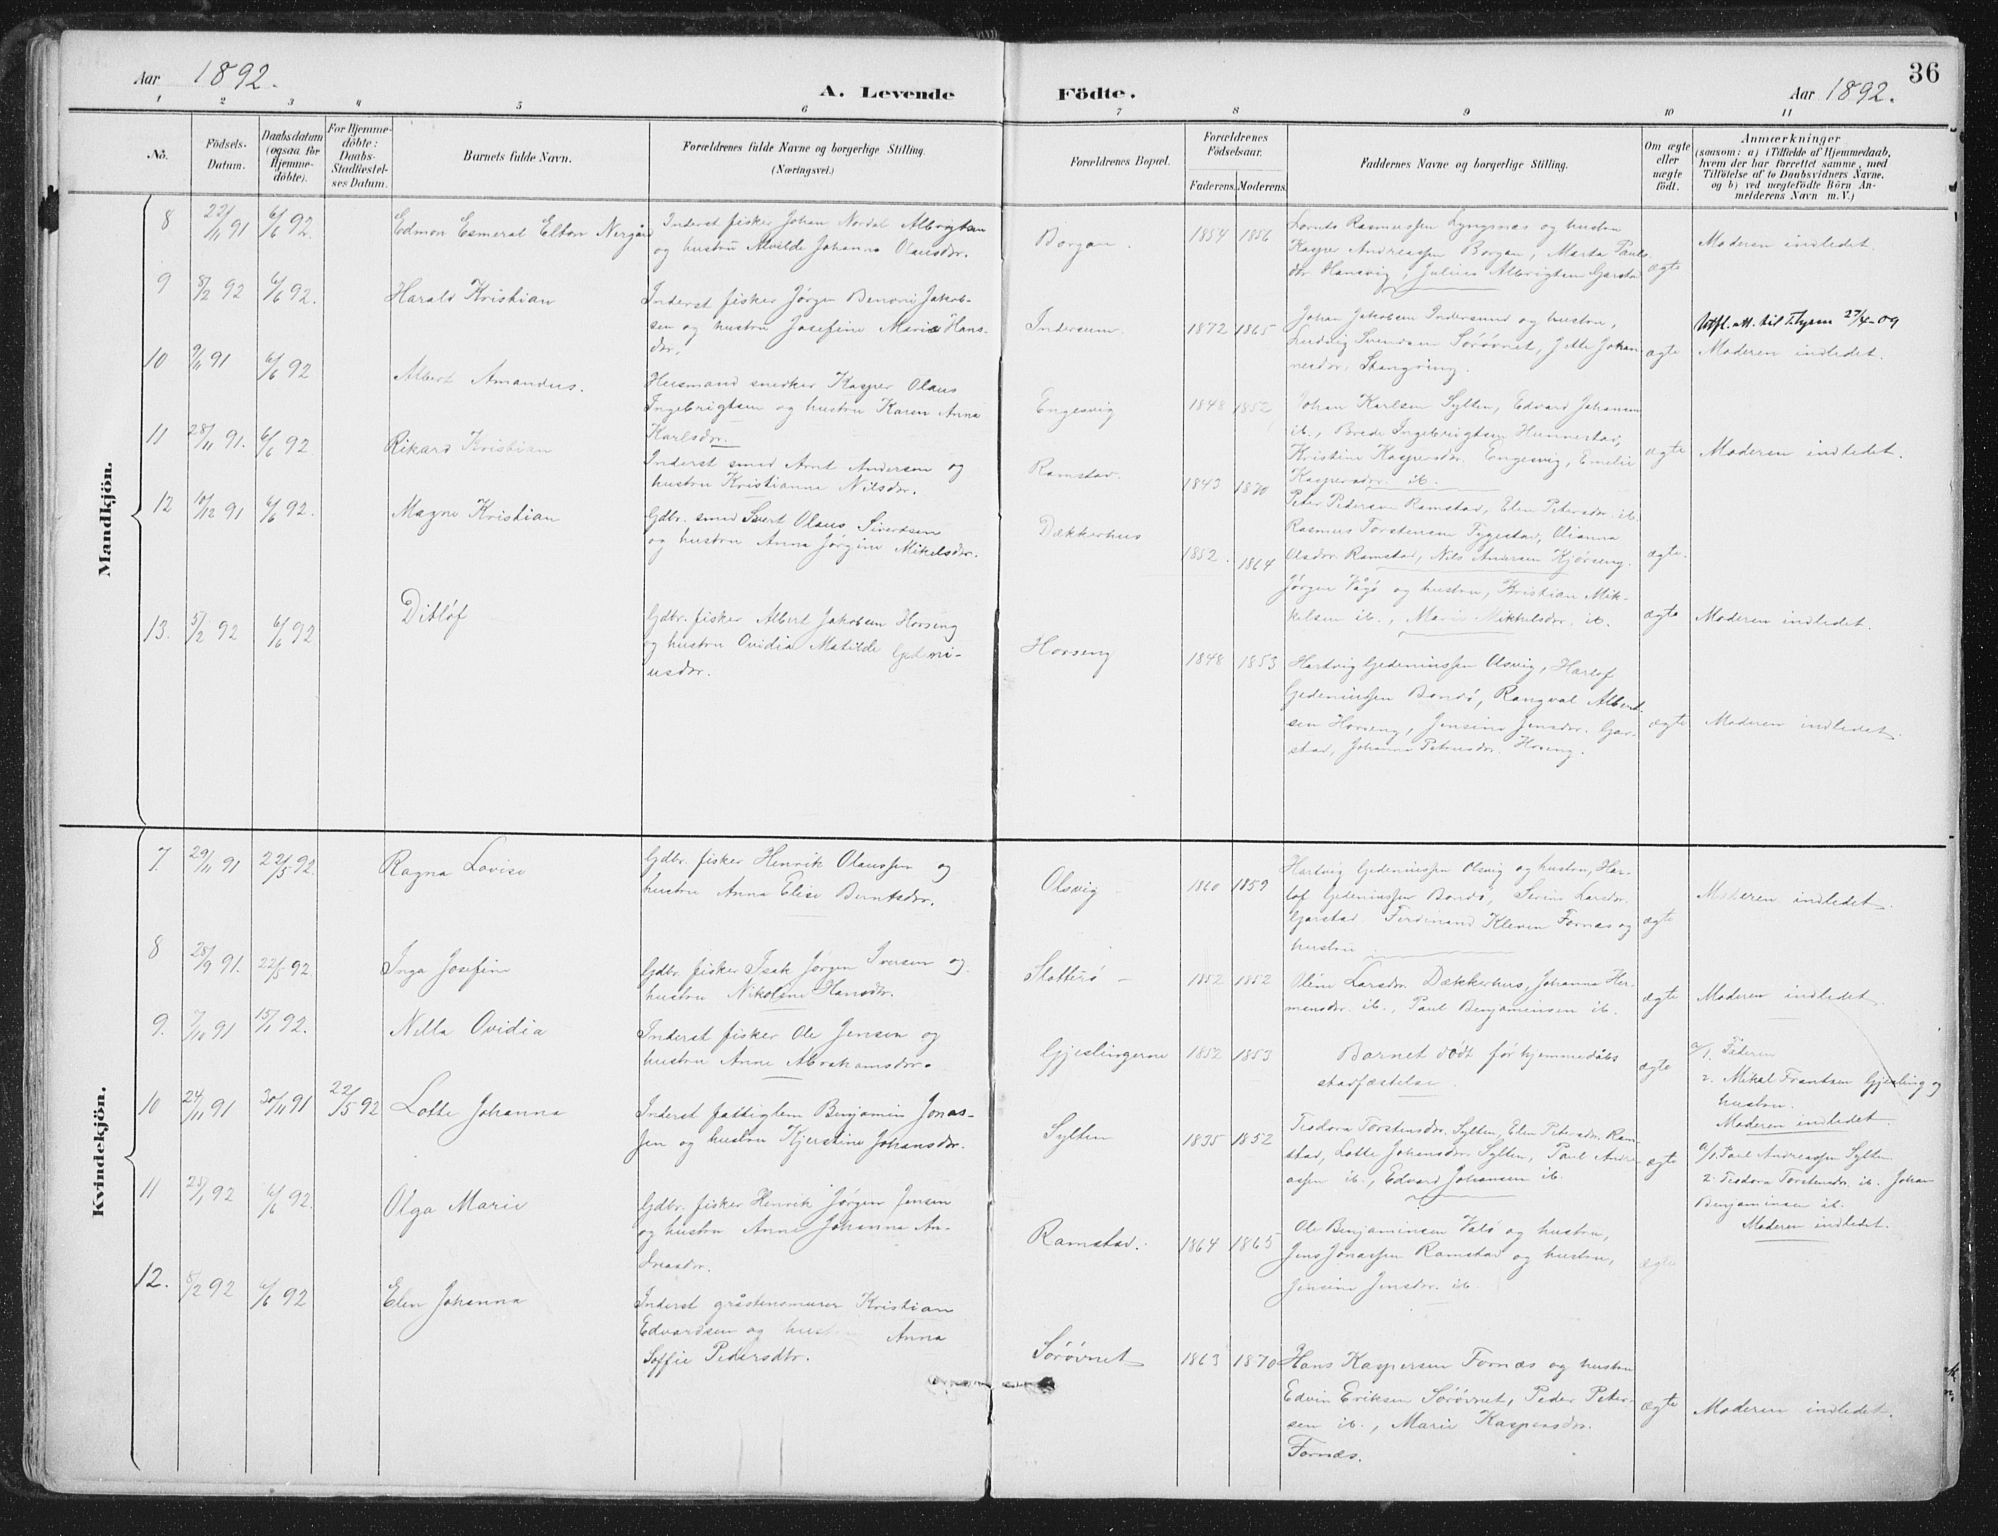 Aar 1892.
A. Levende Födte.
Aar 1892.
36
1 2 3 4 5 6 7 8 9 10 11
No.
Födsels-
Datum.
Daabsdatum
(ogsaa for
Hjemme-
döbte).
For Hjemme-
döbte:
Daabs-
Stadfæstel-
ses Datum.
Barnets fulde Navn.
Forældrenes fulde Navne og borgerlige Stilling.
(Næringsvei.)
Forældrenes Bopæl.
Forældrenes
Födselsaar.
Faderens. Moderens.
Faddernes Navne og borgerlige Stilling.
Om ægte
eller
uægte
födt.
Anmærkninger
(saasom: a) i Tilfælde af Hjemmedaab,
hvem der har forrettet samme, med
Tilföielse af to Daabsvidners Navne,
og b) ved uægtefödte Börn An-
melderens Navn m. V.)
Mandkjön.
8 22/11 91 6/6 92. Edmon Esmeral Elton Nergård
Inderst fisker Johan Nordal Albrigtsen
og hustru Alvilde Johanna Olausdor.
Borgan. 1854 1856
Lornts Rasmussen Lyngsnes og hustru
Kasper Andreassen Borgan, Marta Pauls
dtr Hansvig, Julius Albrigtsen Garstad
ægte Moderen indledet.
9 8/2 92 6/6 92. Harald Kristian
Inderst fisker Jørgen Benoni Jakob-
sen og hustru Josefine Marie Hans-
dr.
Indersum. 1872 1865
Johan Jakobsen Indersund og hustru,
Ludvig Svendsen Sørøvnet, Jette Johan-
nesdor, Stangring.
ægte
Utfl. att. til 27/4-09
Moderen indledet.
10 9/11 91 6/6 92 Albert Amandus.
Husmand snedker Kasper Olaus
Ingebrigtsen og hustru Karen Anna
Karlsdor.
Engesvig 1848 1852
Johan Karlsen Sylten, Edvard Johansen
ib., Brede Ingebrigtsen Hunnestad,
Kristine Kaspersdor. Engesvig, Emelie
Kaspersdor. ib.
ægte Moderen indledet.
11 28/11 91. 6/6 92 Rikard Kristian
Inderst smed Arnt Andersen og
hustru Kristianna Nilsdor.
Ramstad. 1843 1870
Peter Pedersen Ramstad, Elen Petersdor. ib.
Rasmus Torstensen Tygestad, Olianna
Olsdor. Ramstad, Nils Andersen Kjørseng.
ægte.
12 10/12 91 6/6 92. Magne Kristian
Gdbr. smed Sivert Olaus Sivertsen
og hustru Anna Jørgine Mikelsdor.
Dækkerhus 1852. 1864
Jørgen Vågø og hustru, Kristian Mik-
kelsen ib., Marie Mikkelsdor. ib.
ægte Moderen indledet.
13. 5/2 92 6/6 92 Ditløf
Gdbr. fisker Albert Jakobsen Horseng
og hustru Ovidia Matilde Gedeni-
usdor.
Horseng 1848 1853
Hartvig Gedeniussen Olsvig, Harlof
Gedeniussen Bondø, Rangval Albert-
sen Horseng, Jensine Jensdor. Gar-
stad, Johanna Petrusdor. Horseng.
ægte Moderen indledet.
Kvindekjön.
7. 29/11 91 22/5 92. Ragna Lovise
Gdbr. fisker Henrik Olaussen og
hustru Anna Elise Berntsdor.
Olsvig 1860 1859
Hartvig Gedeniussen Olsvig og hustru, Har-
lof Gedeniussen Bondø, Serine Larsdor.
Garstad. Ferdinand Kleven Fornæs og
hustru
ægte Moderen indledet.
8 28/9 91. 22/5 92 Inga Josefine
Gdbr. fisker Isak Jørgen Iversen og
hustru Nikoline Hansdtr.
Slotterø 1852 1852
Oline Larsdor. Dækkerhus, Johanna Her-
mansdor. ib., Paul Benjaminsen ib.
ægte Moderen indledet.
9. 7/10 91 15/1 92. Nella Ovidia
Inderst fisker Ole Jensen og
hustru Anne Abrahamsdor.
Gjeslingerne 1852 1853
Barnet dødt før hjemmedåbs
stadfæstelse.
ægte
a/1. Faderen
2. Mikal Frantsen Gjesling og
hustru.
Moderen indledet.
10 24/11 91 30/11 91 22/5 92 Lotte Johanna
Inderst fattiglem Benjamin Jonas-
sen og hustru Kjerstine Johansdor.
Sylten 1835 1852
Teodora Torstensdor. Sylten, Elen Petersdor. Ram-
stad, Lotte Johansdor. Sylten, Paul Andre-
assen ib., Edvard Johansen ib.
ægte
a/1. Paul Andreassen Sylten
2. Teodora Torstensdor. ib. Johan
Benjaminsen ib.
Moderen indledet.
11 25/1 92 6/6 92. Olga Marie
Gdbr. fisker Henrik Jørgen Jensen
og hustru Anne Johanna An-
dreasdor.
Ramstad. 1864 1865
Ole Benjaminsen Valø og hustru,
Jens Jonassen Ramstad og hustru,
Jensine Jensdor. ib.
ægte
12. 8/2 92 6/6 92 Elen Johanna
Inderst gråstensmurer Kristian
Edvardsen og hustru Anna
Soffie Pedersdtr.
Sørøvnet 1863 1870
Hans Kaspersen Fornæs og hustru
Edvin Eriksen Sørøvnet, Peder Peter-
sen ib., Marie Kaspersdor.
Fornæs.
ægte Moderen indledet.